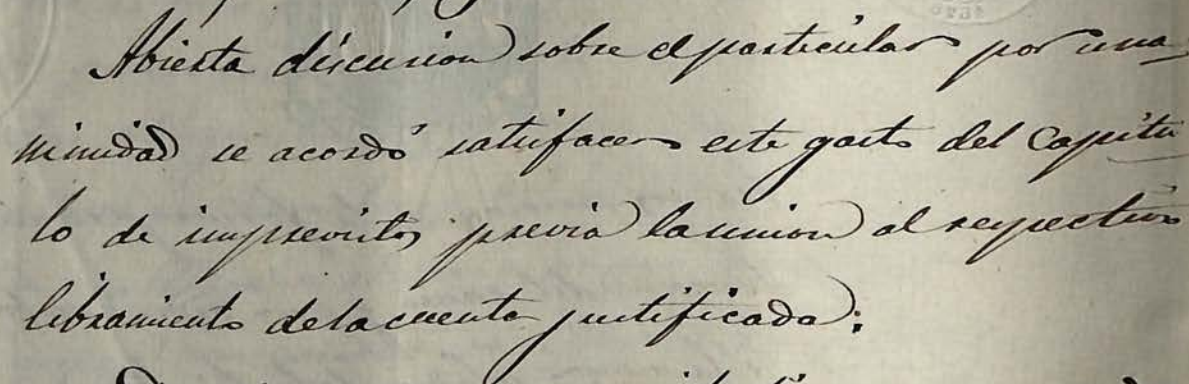 Abierta discusion sobre el particular por una-
nimidad se acordó satisfacer este gasto del Capitu
lo de imprevistos previa la union al respectivo
libramiento de la cuenta justificada: